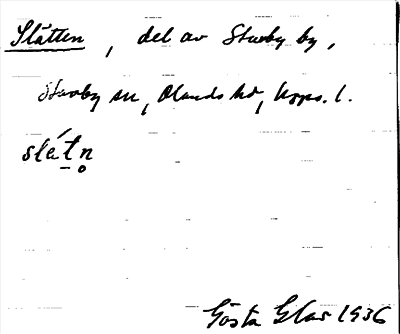 Slätten, del av Stavby by,
Stavby sn, Olands hd, Upps. l.
slét̠n̥
Gösta Glas 1936